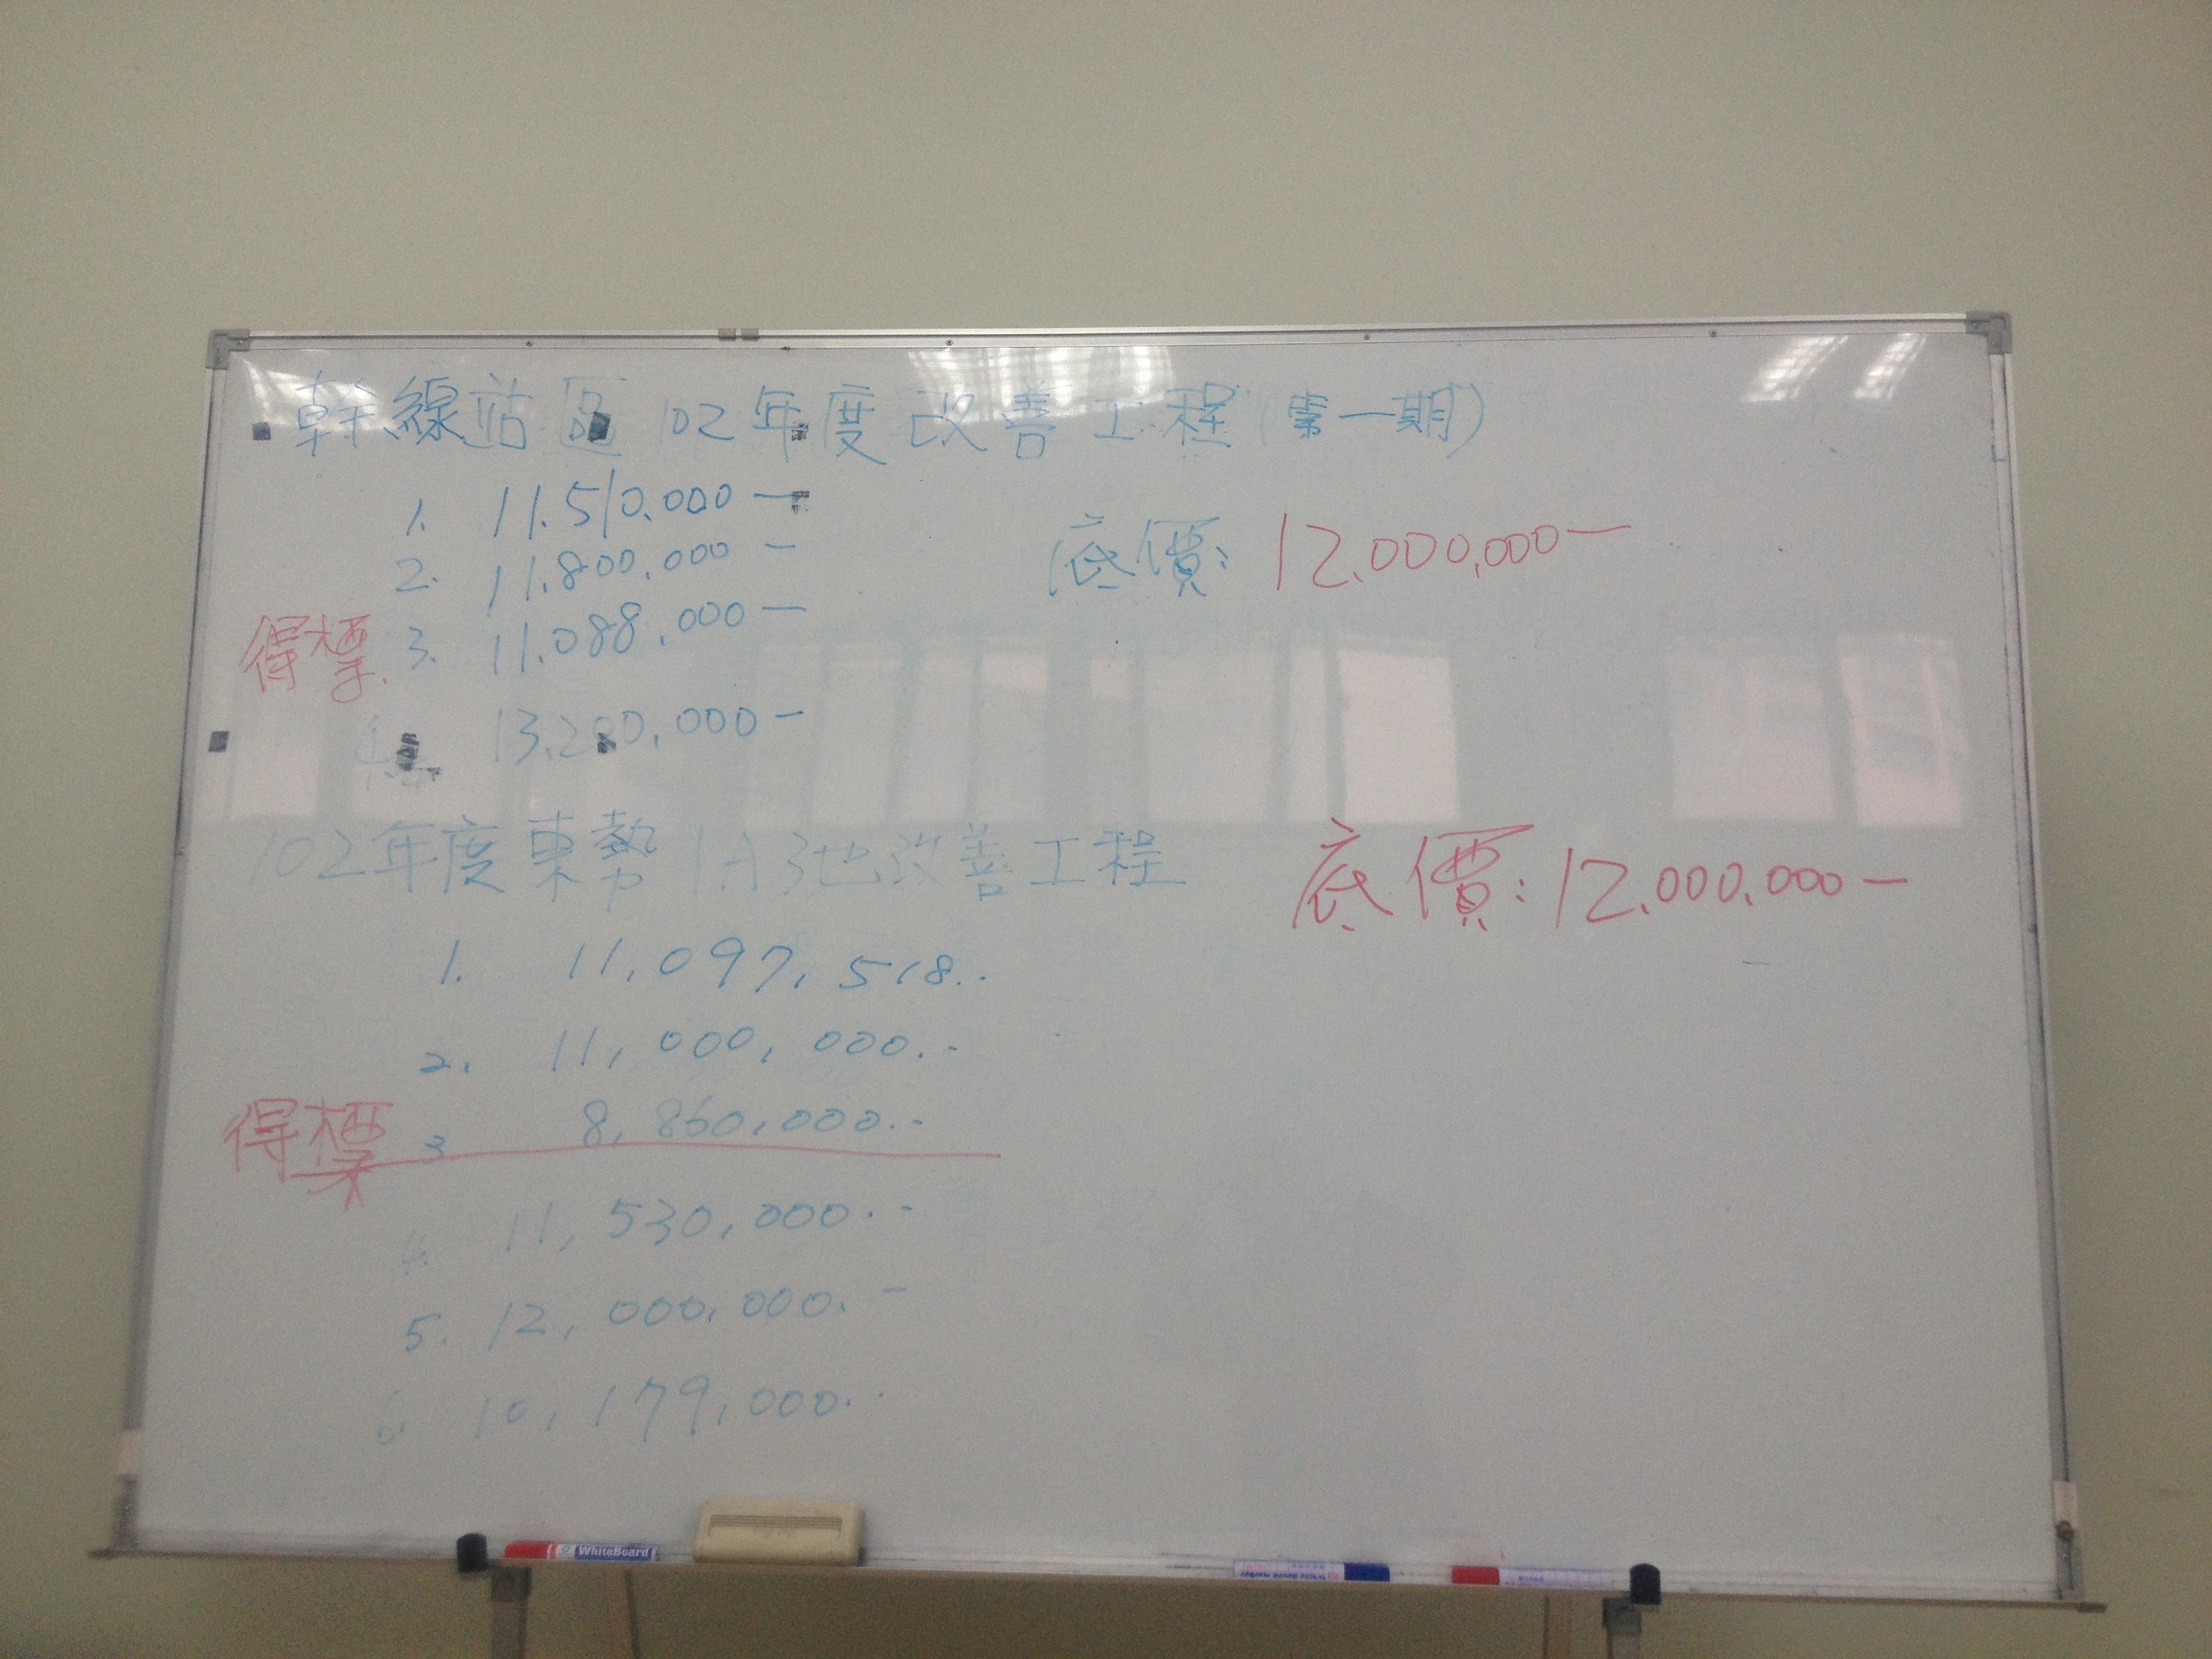 幹線站區102年度改善工程(第一期)
1. 11.510.000一
2. 11.800.000一
得標 3. 11.088.000一
4. 13.200.000一
底價: 12.000,000一
102年度東勢 1A3池改善工程
底價: 12.000.000一
1. 11,097,518..
2. 11,000,000.-
得標 3 8,860,000.-
4. 11,530,000.-
5. 12,000,000.-
6. 10,179,000.
WhiteBoard